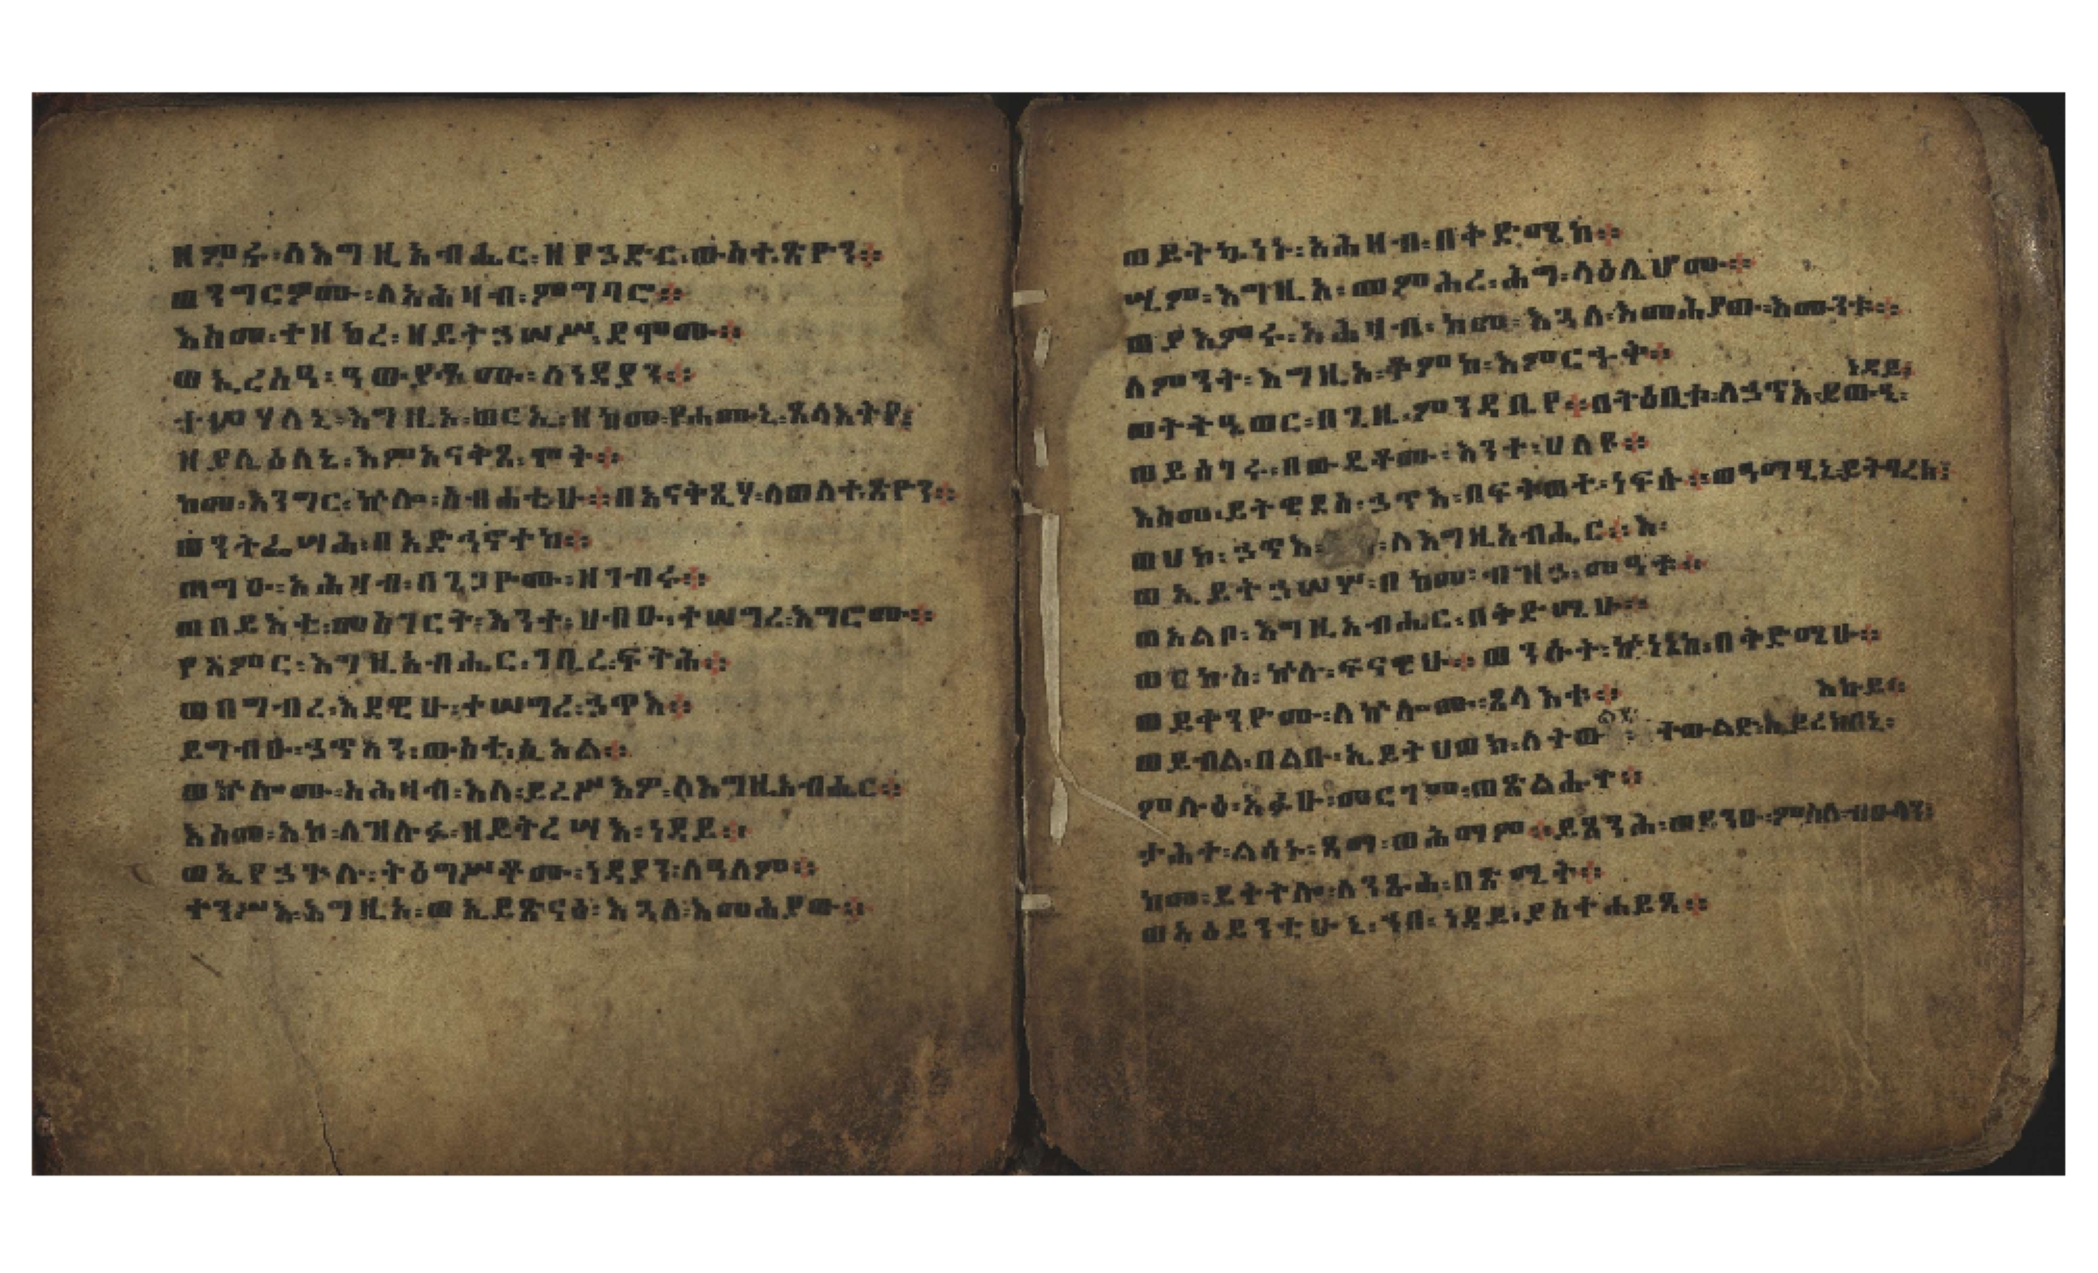 ዘምሩ፡ለእግዚአብሔር፡ዘየኃድር፡ውስተ፡ጽዮን።
ወንግርዎሙ፡ለአሕዛብ፡ምግባሮ።
እስመ፡ተዘከረ፡ዘይትኃሠሥ፡ደሞሙ።
ወኢረስዓ፡ዓውያቶሙ፡ለነዳያን።
ተሣሃለኒ፡እግዚአ፡ወርኢ፡ዘከመ፡የሐሙኒ፡ጸላእትየ፤
ዘያሌዕለኒ፡እምአናቅጸ፡ሞት።
ከመ፡እንግር፡ኵሎ፡ስብሐቲሁ።በአናቅጺሃ፡ለወለተ፡ጽዮን።
ወንትፌሣሕ፡በአድኅኖተከ።
ጠግዑ፡አሕዛብ፡በጌጋዮሙ፡ዘገብሩ።
ወበይእቲ፡መስገርት፡እንተ፡ኀብዑ፡ተሠግረ፡እግሮሙ።
የአምር፡እግዚአብሔር፡ገቢረ፡ፍትሕ።
ወበግብረ፡እደዊሁ፡ተሠግረ፡ኃጥእ።
ይግብኡ፡ኃጥአን፡ውስተ፡ሲኦል።
ወኵሎሙ፡አሕዛብ፡እለ፡ይረሥእዎ፡ለእግዚአብሔር።
እስመ፡አኮ፡ለዝሉፉ፡ዘይትረሣእ፡ነዳይ።
ወኢየኃጕሉ፡ትዕግሥቶሙ፡ነዳያን፡ለዓለም።
ተንሥእ፡እግዚአ፡ወኢይጽናዕ፡እጓለ፡እመሕያው።
ወይትኰነኑ፡አሕዛብ፡በቅድሜከ።
ሢም፡እግዚአ፡መምሕረ፡ሕግ፡ላዕሌሆሙ።
ወያእምሩ፡አሕዛብ፡ከመ፡እጓለ፡እመሕያው፡እሙንቱ።
ለምንት፡እግዚአ፡ቆምከ፡እምርኁቅ።
ነዳይ፤
ወትትዔወር፡በጊዜ፡ምንዳቤየ።በትዕቢቱ፡ለኃጥእ፡ይውዒ፡
ወይሰገሩ፡በውዴቶሙ፡እንተ፡ሀለዩ።
እስመ፡ይትዌደስ፡ኃጥእ፡በፍትወተ፡ነፍሱ።ወዓማፂኒ፡ይትባረክ፤
ወሀከ፡ኃጥእ፡ ፡ለእግዚአብሔር።እ፡
ወኢይትኃሠሦ፡በከመ፡ብዝኃ፡መዓቱ።
ወአልቦ፡እግዚአብሔር፡በቅድሜሁ።
ወርኩስ፡ኵሉ፡ፍናዊሁ።ወንሱት፡ኵነኔከ፡በቅድሜሁ።
ወይቀንዮሙ፡ለኵሎሙ፡ጸላእቱ።
እኩይ።
ወይብል፡በልቡ፡ኢይትሀወክ፡ለትው ትውልድ፡ኢይረክበኒ፡
ምሉዕ፡አፉሁ፡መርገም፡ወጽልሑት።
ታሕተ፡ልሳኑ፡ጻማ፡ወሕማም።ይጸንሕ፡ወይንዑ፡ምስለ፡ብዑላን፤
ከመ፡ይቅትሎ፡ለንጹሕ፡በጽሚት።
ወአዕይንቲሁኒ፡ኀበ፡ነዳይ፡ያስተሐይጻ።